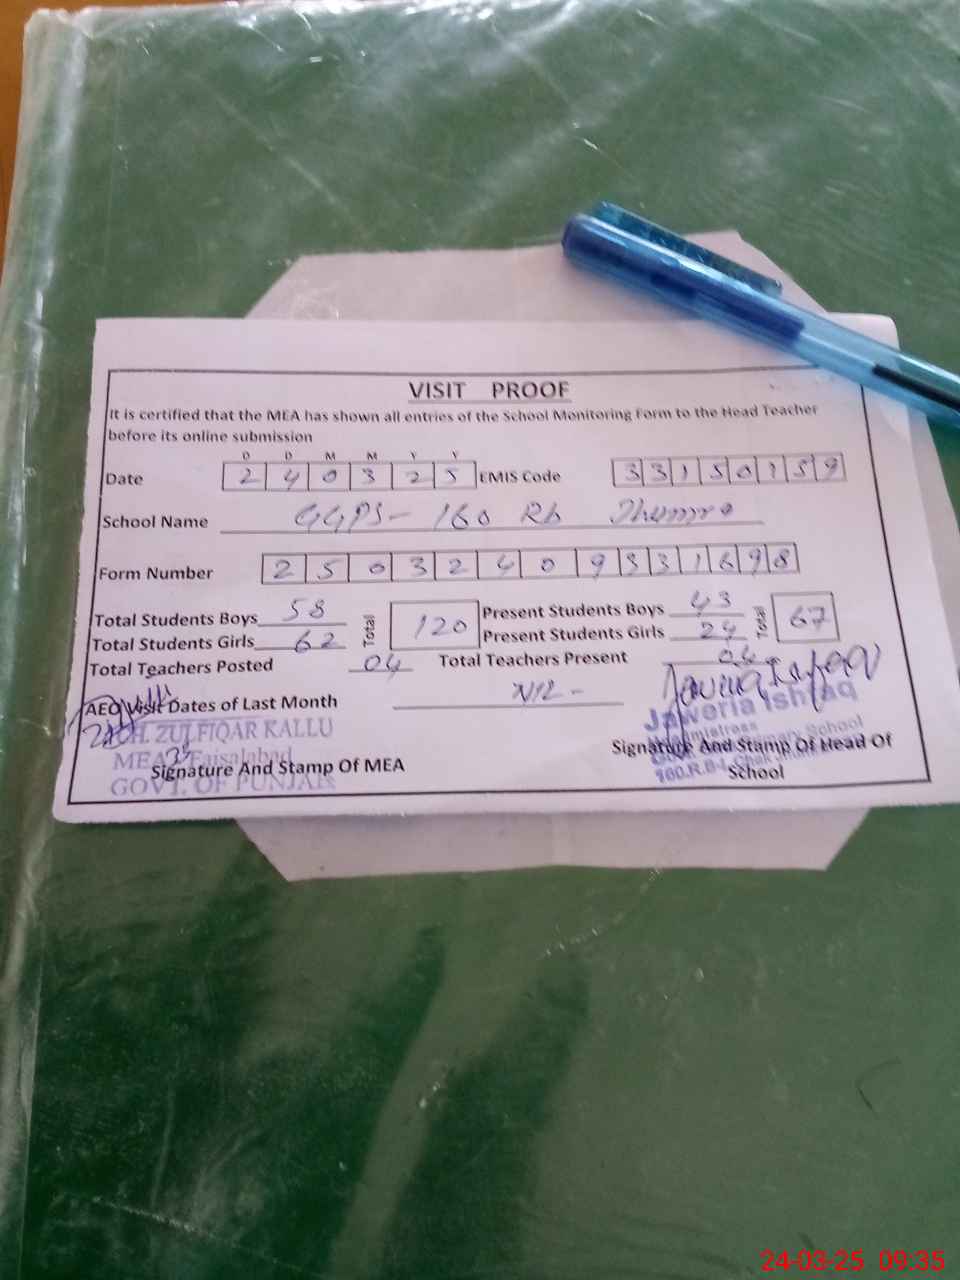 VISIT PROOF
It is certified that the MEA has shown all entries of the School Monitoring Form to the Head Teacher
before its online submission
D D M M Y Y
Date 2 4 0 3 2 5 EMIS Code 3 3 1 5 0 1 5 9
School Name GGPS- 160 Rb
Form Number 2 5 0 3 2 4 0 9 3 3 1 6 9 8
Total Students Boys 58 Total 120 Present Students Boys 43 Total 67
Total Students Girls 62 Present Students Girls 24
Total Teachers Posted 04 Total Teachers Present 04
AEO Visit Dates of Last Month Nil -
CH. ZULFIQAR KALLU
MEA Faisalabad
GOVT. OF PUNJAB
Signature And Stamp Of MEA
Jaweria Ishfaq
Signature And Stamp Of Head Of
School
24-03-25 09:35